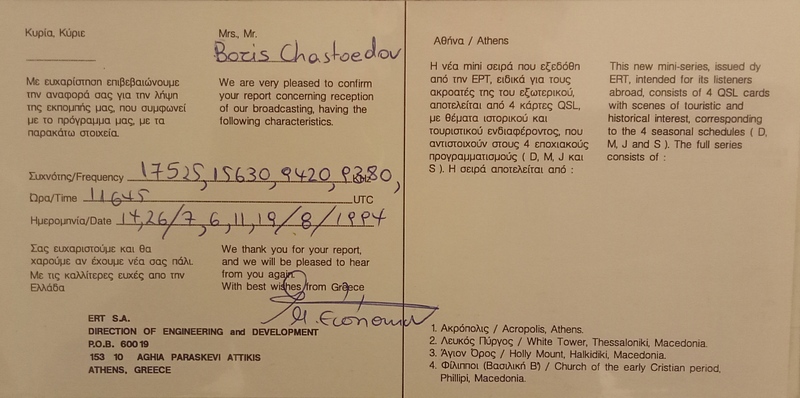 Κυρία, Κύριε
Mrs., Mr.
Boris Chastoedov
Με ευχαρίστηση επιβεβαιώνουμε
την αναφορά σας για την λήψη
της εκπομπής μας, που συμφωνεί
με το πρόγραμμα μας, με τα
παρακάτω στοιχεία.
We are very pleased to confirm
your report concerning reception
of our broadcasting, having the
following characteristics.
Συχνότης/Frequency 17525, 15630, 9420, 9380,
Ώρα/Time 11645 UTC
Ημερομηνία/Date 14,26/7, 6, 11, 19/8/1994
Σας ευχαριστούμε και θα
χαρούμε αν έχουμε νέα σας πάλι.
Με τις καλλίτερες ευχές απο την
Ελλάδα
We thank you for your report,
and we will be pleased to hear
from you again.
With best wishes from Greece
ERT S.A.
DIRECTION OF ENGINEERING and DEVELOPMENT
P.O.B. 600 19
153 10 AGHIA PARASKEVI ATTIKIS
ATHENS, GREECE
Αθήνα / Athens
Η νέα mini σειρά που εξεδόθη
από την ΕΡΤ, ειδικά για τους
ακροατές της του εξωτερικού,
αποτελείται από 4 κάρτες QSL,
με θέματα ιστορικού και
τουριστικού ενδιαφέροντος, που
αντιστοιχούν στους 4 εποχιακούς
προγραμματισμούς ( D, M, J και
S ). Η σειρά αποτελείται από :
This new mini-series, issued dy
ERT, intended for its listeners
abroad, consists of 4 QSL cards
with scenes of touristic and
historical interest, corresponding
to the 4 seasonal schedules ( D,
M, J and S ). The full series
consists of :
1. Ακρόπολις / Acropolis, Athens.
2. Λευκός Πύργος / White Tower, Thessaloniki, Macedonia.
3. Άγιον Όρος / Holly Mount, Halkidiki, Macedonia.
4. Φίλιπποι (Βασιλική Β') / Church of the early Cristian period,
Phillipi, Macedonia.